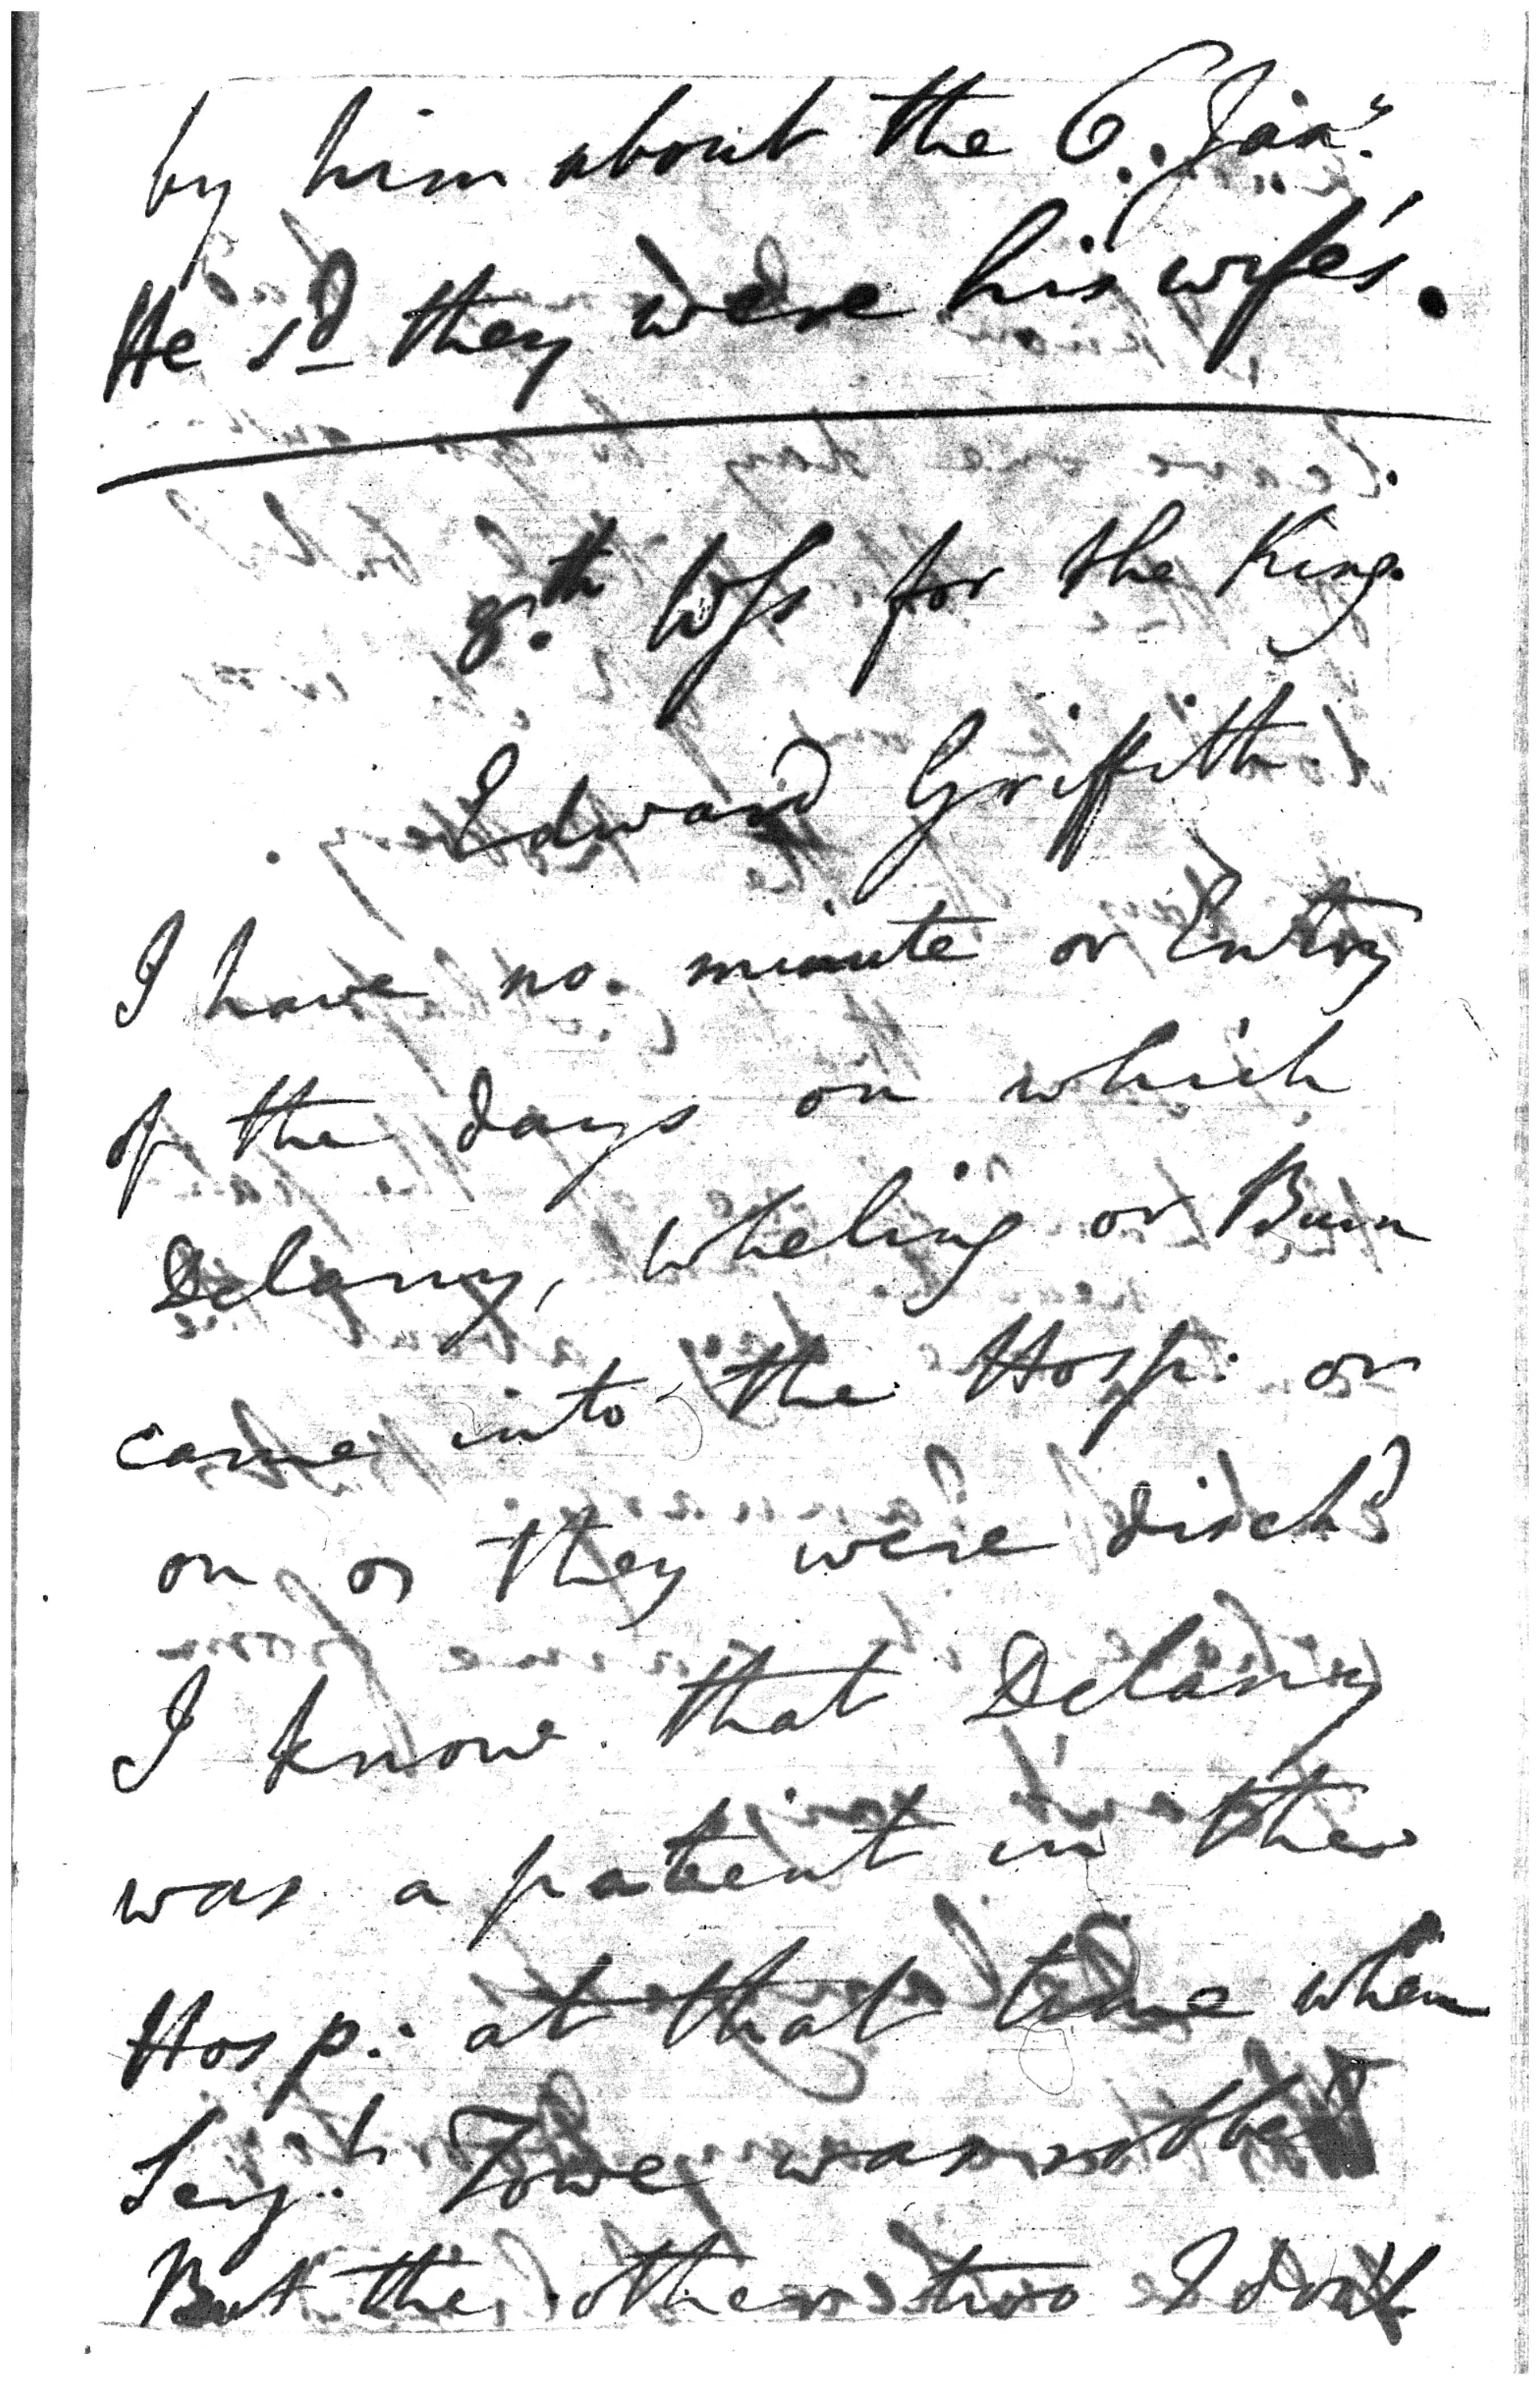 by him about the 6. Jany.
He sd they were his wife's.
8.th Wss for the King.
Edward Griffith
I have no minute or Entry
of the days on which
Delany, Wheling or Burn
came into the Hosp: or
on or they were dischd
I know that Delany
was a patient in the
Hosp: at that time when
Serjt. Towe was robbed
But the other two I don't